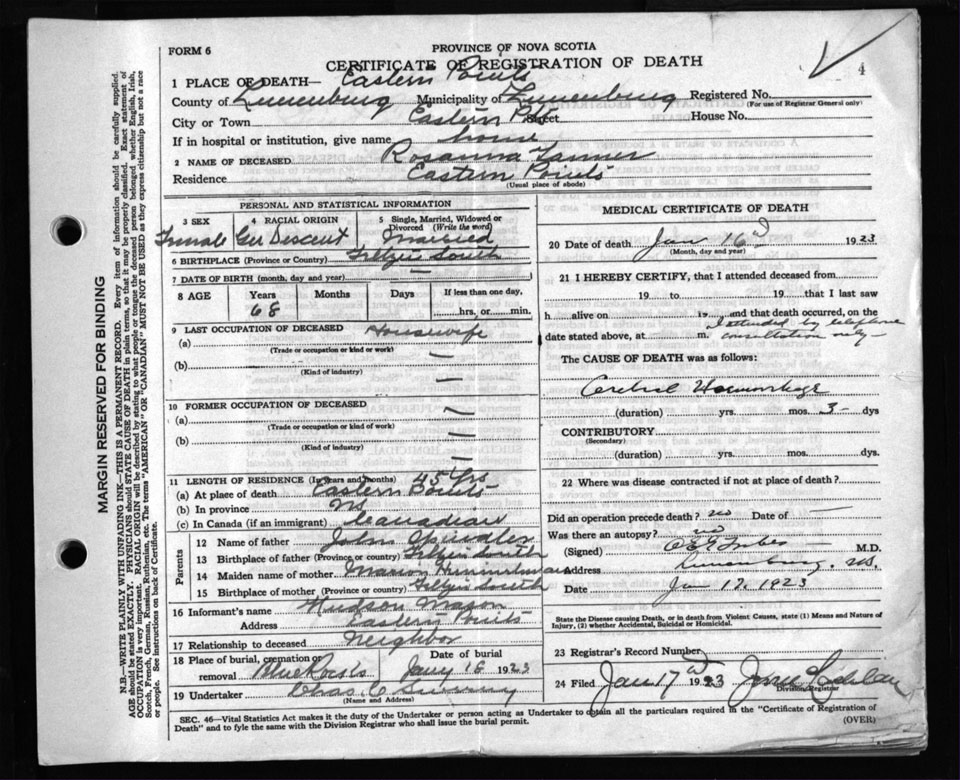 FORM 6
PROVINCE OF NOVA SCOTIA
CERTIFICATE OF REGISTRATION OF DEATH
4
1 PLACE OF DEATH— Eastern Points
County of Lunenburg Municipality of Lunenburg Registered No.
(For use of Registrar General only)
City or Town Eastern Pts Street House No.
If in hospital or institution, give name home
2 NAME OF DECEASED Rosanna Tanner
Residence Eastern Points
(Usual place of abode)
PERSONAL AND STATISTICAL INFORMATION
3 SEX 4 RACIAL ORIGIN 5 Single, Married, Widowed or Divorced (Write the word)
Female Ger Descent Married
6 BIRTHPLACE (Province or Country) South
7 DATE OF BIRTH (month, day and year) —
8 AGE Years Months Days If less than one day,
68 hrs. or min.
9 LAST OCCUPATION OF DECEASED Housewife
(a)
(Trade or occupation or kind or work)
(b) —
(Kind of industry)
—
10 FORMER OCCUPATION OF DECEASED
(a) —
(Trade or occupation or kind of work)
(b) —
(Kind of industry)
—
11 LENGTH OF RESIDENCE (In years and months) 45 Yrs
(a) At place of death Eastern Points
(b) In province NS
(c) In Canada (if an immigrant) Canadian
Parents
12 Name of father John Spindler
13 Birthplace of father (Province or country) South
14 Maiden name of mother Marion Himmelman
15 Birthplace of mother (Province or country) South
16 Informant's name Hudson Mason
Address Eastern Points
17 Relationship to deceased Neighbor
18 Place of burial, cremation or removal Blue Rocks Date of burial Jany 18 1923
19 Undertaker Chas. C
(Name and Address)
MEDICAL CERTIFICATE OF DEATH
20 Date of death Jan 16 1923
(Month, day and year)
21 I HEREBY CERTIFY, that I attended deceased from
19 to 19 that I last saw
h alive on 19 and that death occurred, on the
date stated above, at m. I attended by telephone
consultation only—
The CAUSE OF DEATH was as follows:
Cerebral Haemorrhage
(duration) yrs. mos. 3 - dys
CONTRIBUTORY
(Secondary)
(duration) yrs. mos. dys.
22 Where was disease contracted if not at place of death?
Did an operation precede death? no Date of —
Was there an autopsy? no
(Signed) M.D.
Address Lunenburg. N.S.
Date Jan 17. 1923
State the Disease causing Death, or in death from Violent Causes, state (1) Means and Nature of
Injury, (2) whether Accidental, Suicidal or Homicidal.
23 Registrar's Record Number
24 Filed Jan 17th 1923
Division Registrar
SEC. 46—Vital Statistics Act makes it the duty of the Undertaker or person acting as Undertaker to obtain all the particulars required in the "Certificate of Registration of
Death" and to fyle the same with the Division Registrar who shall issue the burial permit.
(OVER)
MARGIN RESERVED FOR BINDING
N.B.—WRITE PLAINLY WITH UNFADING INK—THIS IS A PERMANENT RECORD. Every item of information should be carefully supplied.
AGE should be stated EXACTLY. PHYSICIANS should STATE CAUSE OF DEATH in plain terms, so that it may be properly classified. Exact statement of
OCCUPATION is very important. RACIAL ORIGIN will be described by stating to what people or tongue the deceased person belonged whether English, Irish,
Scotch, French, German, Russian, Ruthenian, etc. The terms "AMERICAN" OR "CANADIAN" MUST NOT BE USED as they express citizenship but not a race
or people. See instructions on back of Certificate.